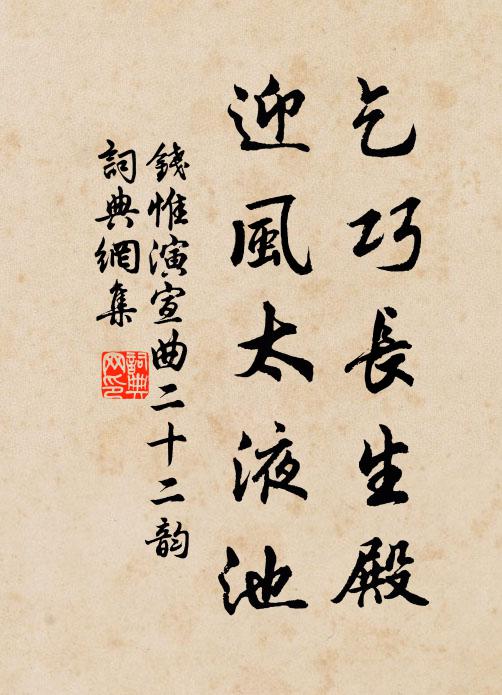 乞巧長生殿
迎風太液池
錢惟演宣曲二十二韵
詞典網集
詞典网印